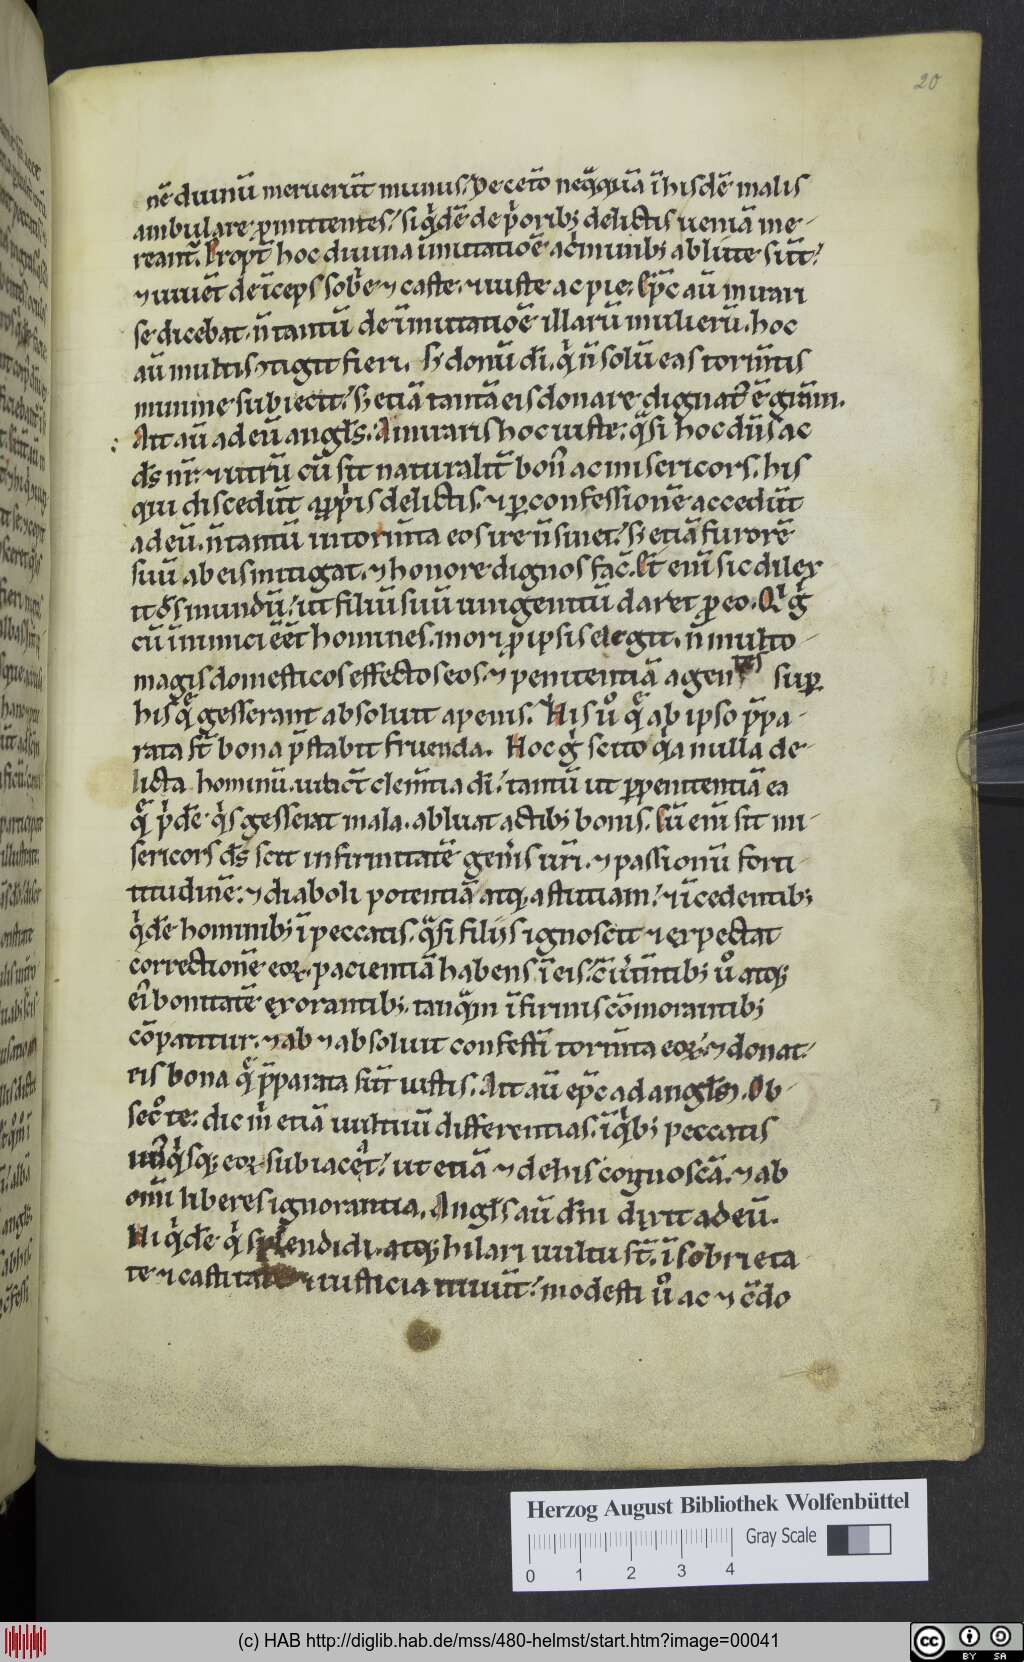 20
nē diuinū meruerūt munus. De cetō neq̄quā ī hisdē malis
ambulare ꝓmittentes. siq̇dē de p̄orib; delictis ueniā me-
reant̄. Propt̄ hoc diuina īmutatiōe ac̄minib; ablute sūt.
⁊ uiuēt deīceps sobꝛ̄e ⁊ caste. ⁊ iuste ac pie. Ep̄c aū mirari
se dicebat. n̄ tantū de īmutatiōe illarū mulierū. hoc
aū multis ꝯtigit fieri. Sꝫ donū dī. q̇ n̄ solū eas torm̄tis
minime subiecit. sꝫ etiā tantā eis donare dignat̄ ē gr̄am.
Ait aū ad eū angl̄s. Miraris hoc iuste. q̄si hoc dn̄s ac
ds̄ nr̄. ⁊ utrū cū sit naturalit̄ bon᷒ ac misericors. his
qui discedūt a ꝓp̄is delictis. ⁊ ꝑ confessionē accedūt
ad eū. n̄ tantū in tormīta eos ire n̄ sinet. sꝫ etiā furorē
suū ab eis mitigat. ⁊ honore dignos fac̄. Et̄ enī sic dilex-
it ds̄ mundū. ut filiū suū unigenitū daret ꝓ eo. Qı ḡ
cū inimici ēēt homines. mori ꝓ ipsis elegit. n̄ multo
magis domesticos effectos eos. ⁊ penitentiā agentes suꝑ
his q̄ gesserant absoluit a penis. His u̇ q̄ ab ipso p̄pa-
rata st̄ bona p̄stabit fruenda. Hoc ġ scito qa nulla de-
licta hominū uīcit clem̄tia dī. tantū ut ꝑ penitentiā ea
q̄ ṗdē q̇s gesserat mala. abluat actib; bonis. Cū enī sit mi-
sericors ds̄ scit infirmitatē gen̄is uri. ⁊ passionū forti-
titudinē. ⁊ diaboli potentiā atq; astutiam. ⁊ īcedentib;
q̇dē hominib; ī peccatis. q̄si filiis ignoscit ⁊ expectat
correctionē eoꝝ. pacientiā habens ī eis. c̄uert̄tib; u̇ atq;
ei᷒ bonitatē exorantib;. tanq̄m īfirmis cōmorantib;
cōpatitur. ⁊ ab ⁊ absoluit confestī tormīta eoꝝ. ⁊ donat
eis bona q̄ p̄parata sūt iustis. Ait aū ep̄c ad angl̄m. Ob-
secͦ te. dic m̄ etiā uultuū differentias. īq̇b; peccatis
un᷒q̇sq; eoꝝ subiacet. ut etiā ⁊ de his cognoscā. ⁊ ab
omī liberes ignorantia. Angl̄s aū dn̄i dixit ad eū.
Hi q̇dē q̇ splendidi. atq; hilari uultu st̄. ī sobrieta-
te ⁊ castitate ⁊ iusticia uiuūt. modesti u̇ ac ⁊ c̄do
Herzog August Bibliothek Wolfenbüttel
Gray Scale
0 1 2 3 4
(c) HAB http://diglib.hab.de/mss/480-helmst/start.htm?image=00041
cc BY SA